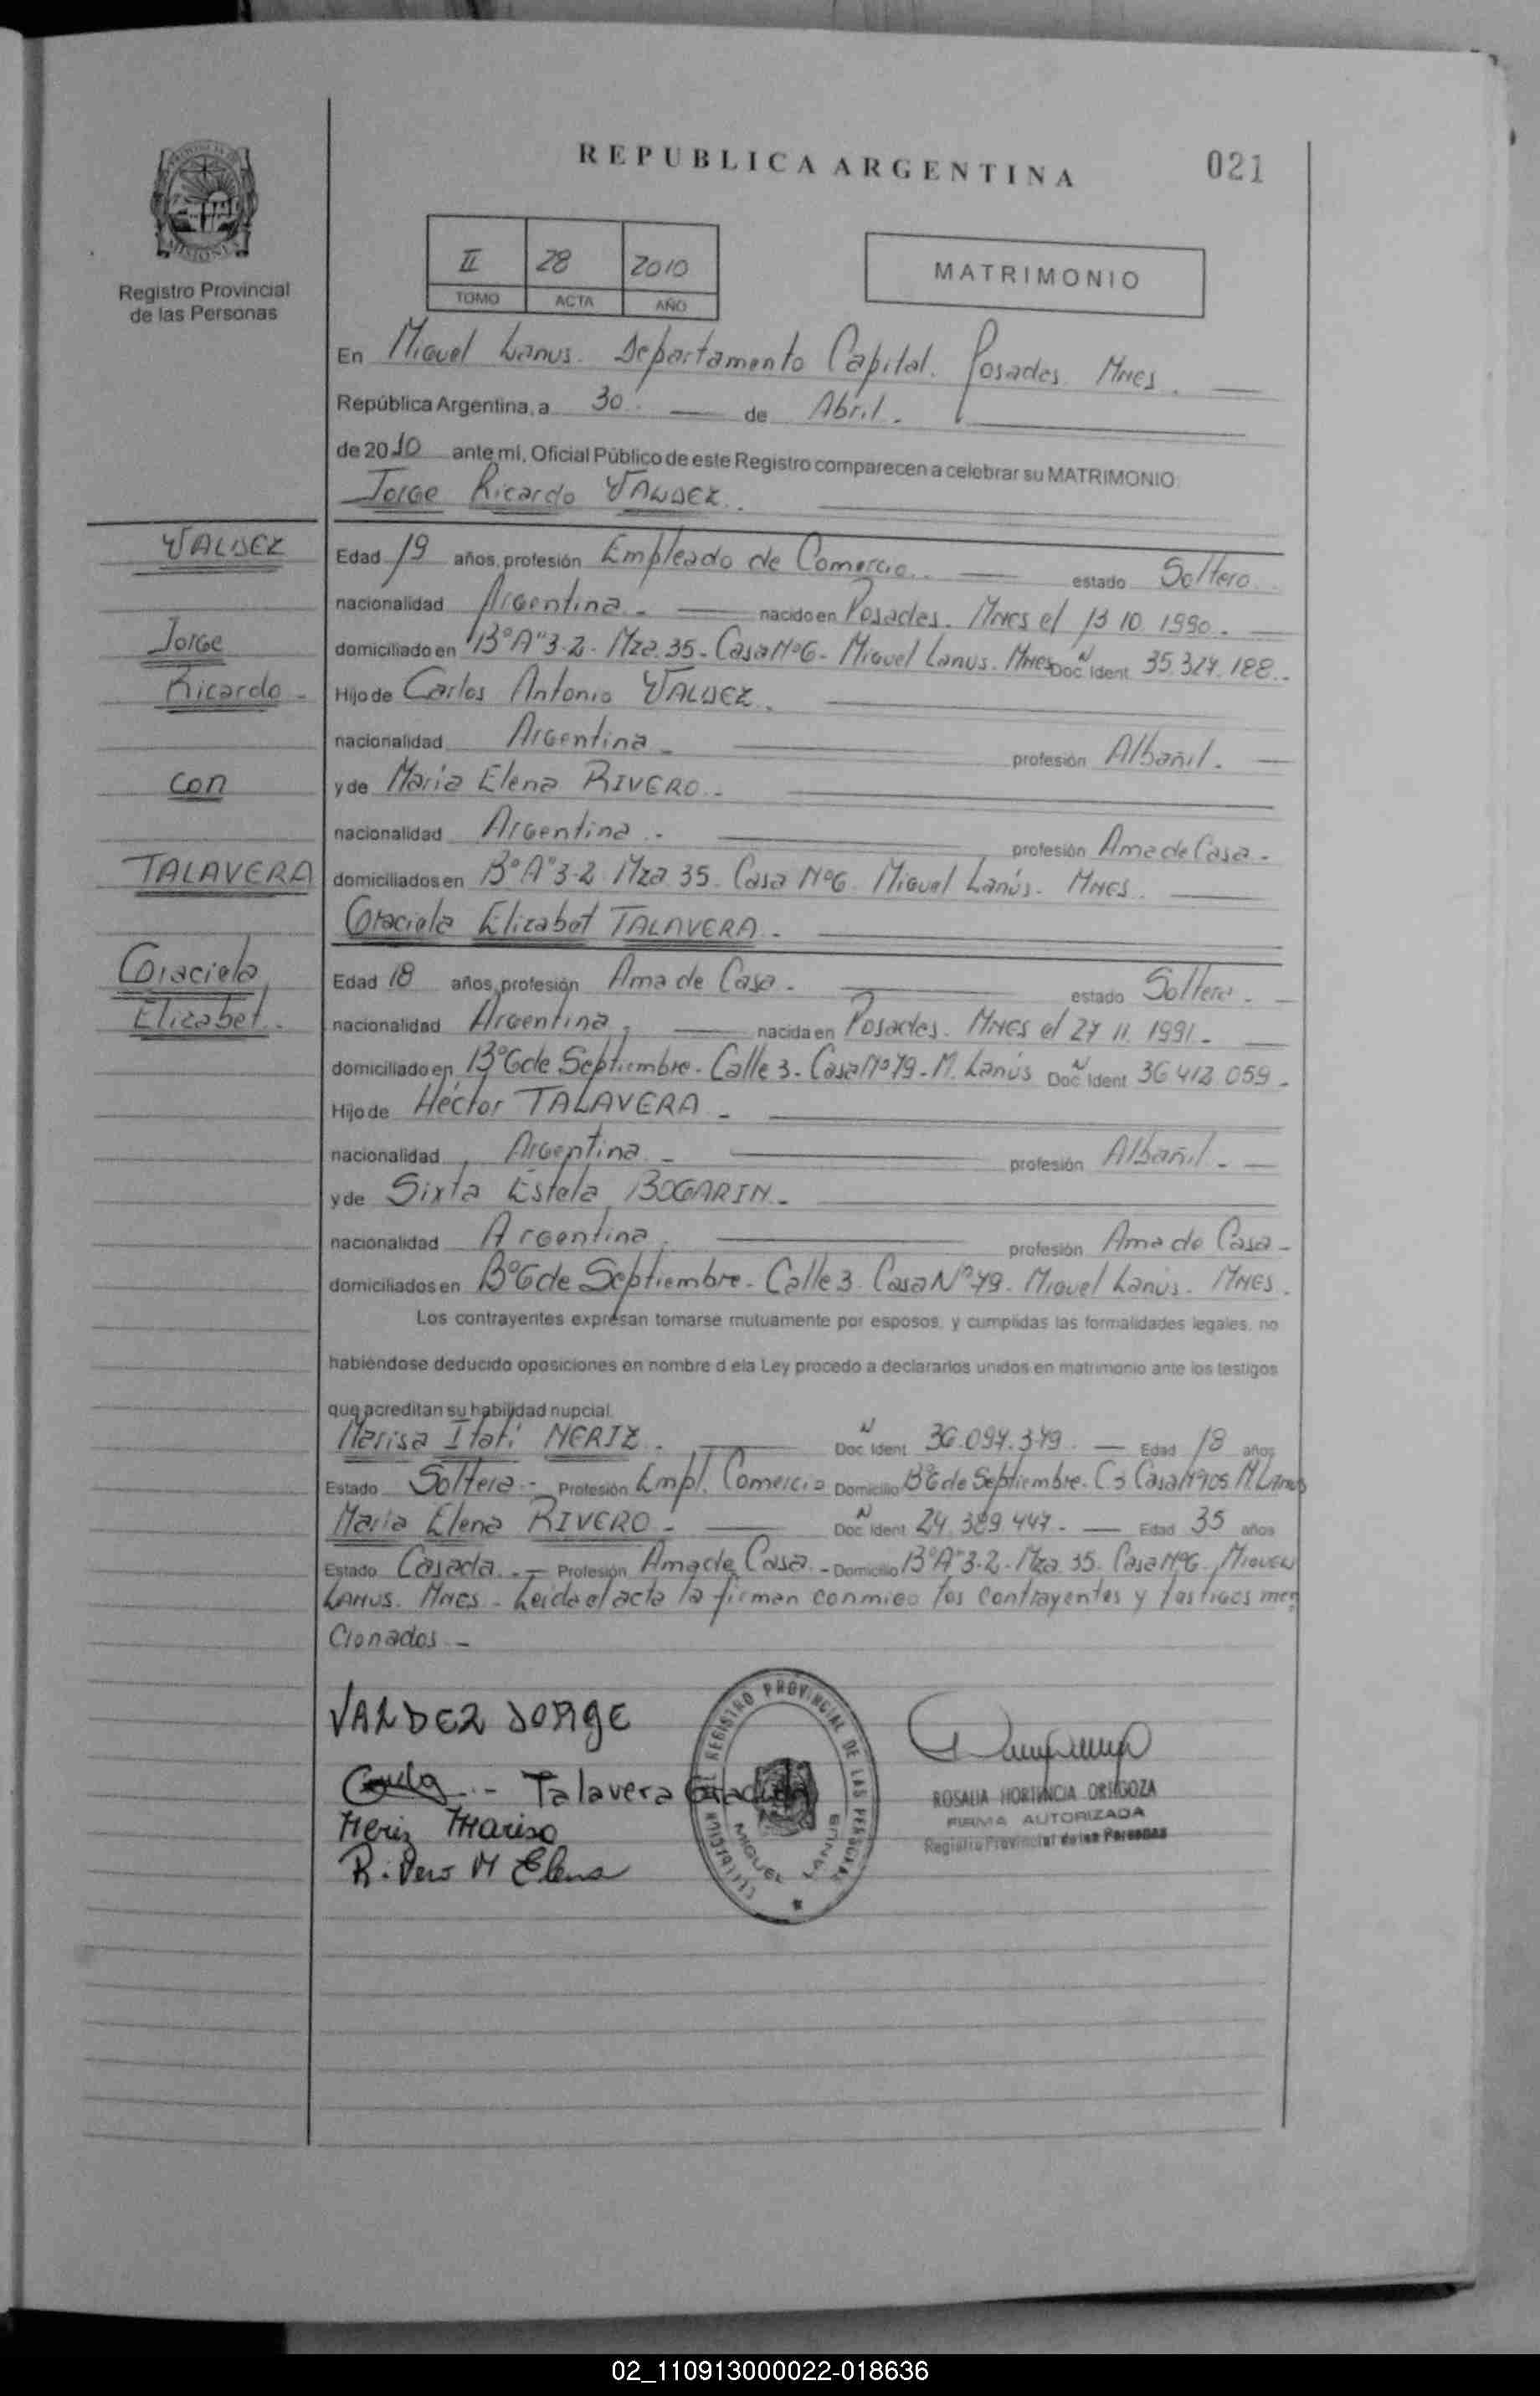 REPUBLICA ARGENTINA
021
II 28 2010
TOMO ACTA AÑO
MATRIMONIO
Registro Provincial
de las Personas
En Miguel Lanus. Departamento Capital. Posadas. Mnes.
República Argentina, a 30 de Abril.
de 2010 ante mi, Oficial Público de este Registro comparecen a celebrar su MATRIMONIO
Jorge Ricardo VALDEZ.
VALDEZ
Edad 19 años, profesión Empleado de Comercio. estado Soltero.
nacionalidad Argentina. nacido en Posadas. Mnes el 13 10 1990.
Jorge
domiciliado en B°"A"3-2- Mza. 35- Casa N°6- Miguel Lanus. Mnes Doc. N Ident 35.327.188.
Ricardo -
Hijo de Carlos Antonio VALDEZ.
nacionalidad Argentina profesión Albañil.
con
y de Maria Elena RIVERO.
nacionalidad Argentina. profesión Ama de Casa.
TALAVERA
domiciliados en B°"A"3-2 Mza 35. Casa N°6. Miguel Lanús. Mnes.
Graciela Elizabet TALAVERA.
Graciela
Edad 18 años, profesión Ama de Casa. estado Soltera.
Elizabet.
nacionalidad Argentina. nacida en Posadas. Mnes el 27 11 1991.
domiciliado en B°6 de Septiembre. Calle 3. Casa N°79. M. Lanús Doc. N Ident 36 412 059.
Hijo de Héctor TALAVERA
nacionalidad Argentina profesión Albañil.
y de Sixta Estela BOGARIN.
nacionalidad Argentina. profesión Ama de Casa
domiciliados en B°6 de Septiembre. Calle 3. Casa N°79. Miguel Lanús. Mnes.
Los contrayentes expresan tomarse mutuamente por esposos, y cumplidas las formalidades legales, no
habiéndose deducido oposiciones en nombre d ela Ley procedo a declararlos unidos en matrimonio ante los testigos
que acreditan su habilidad nupcial.
Marisa Itatí NERIZ. Doc. N Ident 36.097.379. Edad 18 años
Estado Soltera. Profesión Empl. Comercio Domicilio B°6 de Septiembre. C3 Casa N°105. M. Lanus
Maria Elena RIVERO. Doc. N Ident 24.389.447. Edad 35 años
Estado Casada. Profesión Ama de Casa. Domicilio B°"A"3-2- Mza 35. Casa N°6. Miguel
LANUS. Mnes. Leida el acta la firman conmigo los contrayentes y testigos men
cionados.
VALDEZ JORGE
Talavera Graciela
Neriz Marisa
Rivero M Elena
REGISTRO PROVINCIAL DE LAS PERSONAS
MIGUEL LANUS
ROSALIA HORTENCIA ORTIGOZA
FIRMA AUTORIZADA
Registro Provincial de las Personas
02_110913000022-018636